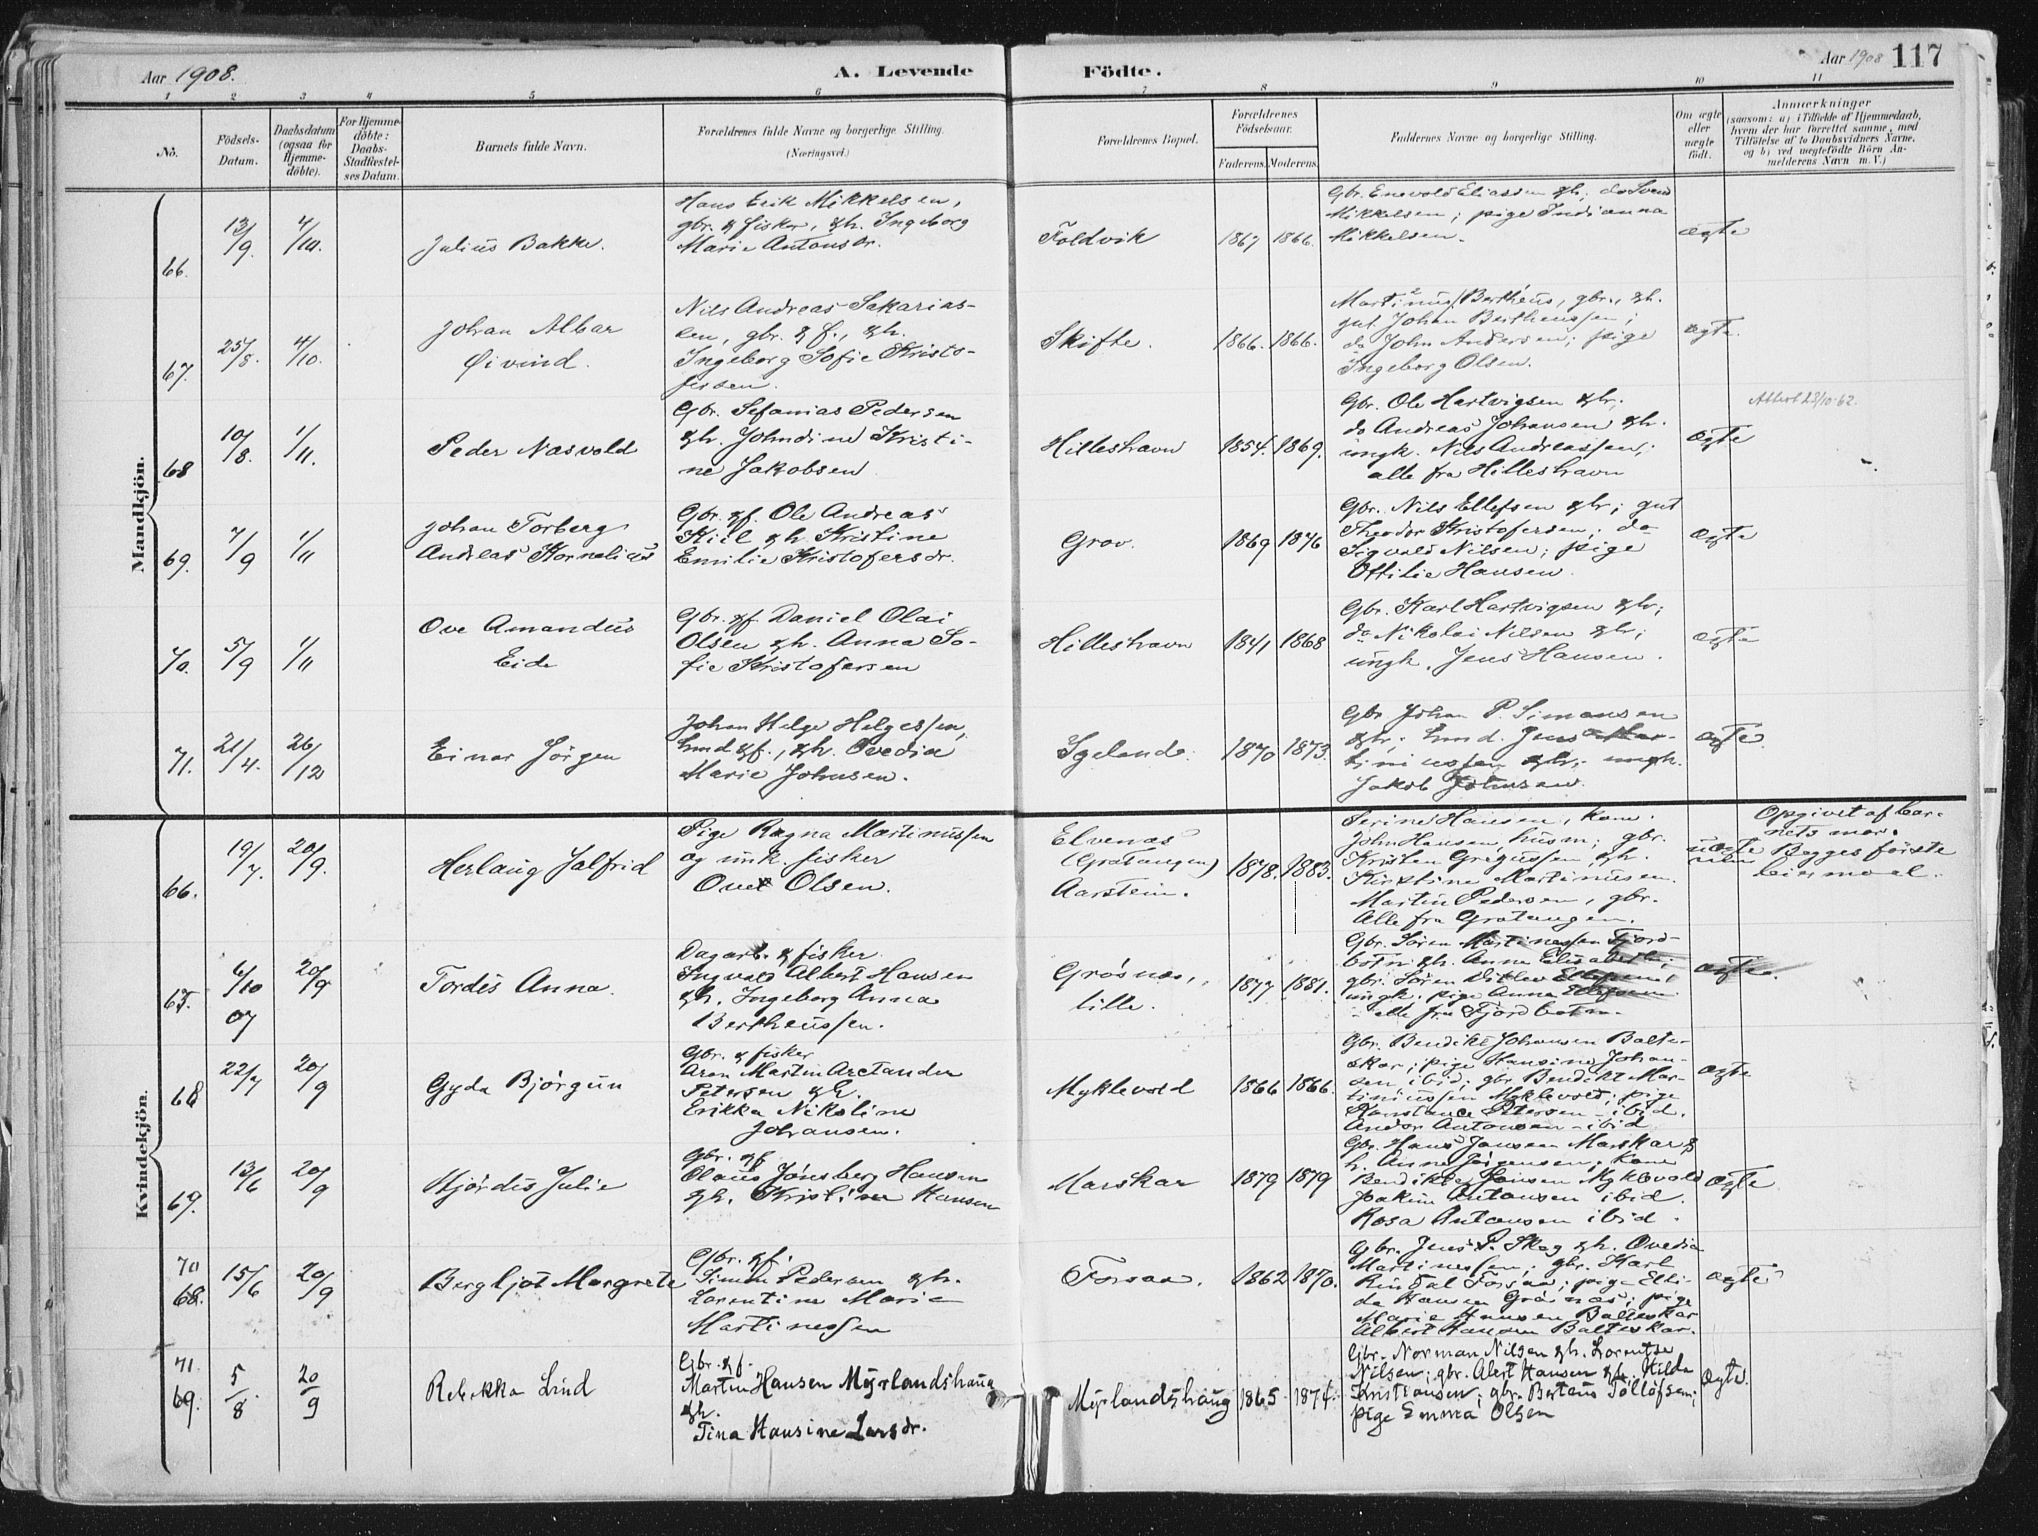 Aar 1908.
A. Levende
Födte.
Aar 1908
117
1 2 3 4 5 6 7 8 9 10 11
No.
Födsels-
Datum.
Daabsdatum
(ogsaa for
Hjemme-
döbte).
For Hjemme-
döbte:
Daabs-
Stadfæstel-
ses Datum.
Barnets fulde Navn.
Forældrenes fulde Navne og borgerlige Stilling.
(Næringsvei.)
Forældrenes Bopæl.
Forældrenes
Födselsaar.
Faderens. Moderens.
Faddernes Navne og borgerlige Stilling.
Om ægte
eller
uægte
födt.
Anmærkninger
(saasom: a) i Tilfælde af Hjemmedaab,
hvem der har forrettet samme, med
Tilföielse af to Daabsvidners Navne,
og b) ved uægtefödte Börn An-
melderens Navn m. V.)
Mandkjön.
66.
13/9
4/10.
Julius Bakke.
Hans Erik Mikkelsen,
gbr. & fisker, & h. Ingeborg
Marie Antonsdr.
Foldvik
1867 1866.
Gbr. Enevold Eliassen & h., do Svend
Mikkelsen; pige Indianna
Mikkelsen.
ægte
67.
25/8
4/10
Johan Albar
Øivind.
Nils Andreas Sakarias-
sen, gbr. & f., & h.
Ingeborg Sofie Kristo-
fersen.
Skifte.
1866. 1866.
Martinus Berthéus, gbr., & h.
gut Johan Bertheussen;
do John Andersen; pige
Ingeborg Olsen.
ægte.
68
10/8.
1/11.
Peder Næsvold
Gbr. Sefanias Pedersen
& h. Johndine Kristi-
ne Jakobsen
Hilleshavn
1854. 1869.
Gbr. Ole Hartvigsen & h.;
do Andreas Johansen & h.
ungk. Nils Andreassen;
alle fra Hilleshavn
ægte
Attest 23/10-62.
69.
7/9
1/11
Johan Torberg
Andreas Kornelius
Gbr. & f. Ole Andreas
Kiil & h. Kristine
Emilie Kristofersdr.
Grov.
1869 1876
Gbr. Nils Ellefsen & h.; gut
Theodor Kristofersen; do
Sigvald Nilsen; pige
Ottilie Hansen.
ægte
70.
5/9
1/11
Ove Amandus
Eide
Gbr. & f. Daniel Olai
Olsen & h. Anna So-
fie Kristofersen
Hilleshavn
1841 1868
Gbr. Karl Hartvigsen & h.;
do Nikolai Nilsen & h.;
ungk. Jens Hansen.
ægte
71.
21/4.
26/12
Einar Jörgen
Johan Helge Helgessen,
Lmd & f., & h. Ovedia
Marie Johnsen.
Sgelands.
1870 1873.
Gbr Johan P. Simonsen
& h.; Lmd. Jens Mar-
tinussen & h.; ungk.
Jakob Johnsen.
ægte.
Kvindekjön.
66.
19/7.
20/9.
Herlaug Jalfrid
Pige Ragna Martinussen
og unk. fisker
Ove Olsen.
Elvenæs
(Gratangen)
Aarstein.
1878. 1883.
Serine Hansen, kone.
John Hansen, husm; gbr.
Kristen Gregussen & h.
Kirstine Martinusen.
Martin Pedersen, gbr.
Alle fra Gratangen.
uægte
Opgivet af bar-
nets mor.
Begges første
leiermaal.
67.
6/10
07
20/9
Tordis Anna.
Dagarb. & fisker
Ingvald Albert Hansen
& h. Ingeborg Anna
Bertheussen.
Grøsnæs,
lille.
1877 1881.
Gbr. Sören Martinessen Fjord-
botn & h. Anne Elisabeth;
gbr. Sören Ditlev Ellefsen;
ungk. pige Anna Ellefsen
- alle fra Fjordbotn.
ægte.
68
22/7
20/9
Gyda Bjørgun
Gbr. & fisker
Aron Martin Arctander
Petersen & h.
Erikka Nikoline
Johansen.
Myklevold
1866 1866.
Gbr. Bendikt Johansen Balte-
skar; pige Hansine Johan-
sen, ibid; gbr Bendikt Mar-
tinussen Myklevold; pige
Konstance Petersen - ibid.
Andor Antonsen - ibid
ægte
69.
13/6
20/9
Hjørdis Julie
Gbr. & f.
Olaus Jønsberg Hansen
& h. Kristine Hansen
Marskar
1879 1879
Gbr. Hans Jansen Marskar &
h. Anne Jørgensen; kone
Bendikte Jansen Myklevold
Joakim Antonsen ibid.
Rosa Antonsen ibid.
ægte
70
68.
15/6
20/9
Bergljot Margrete
Gbr. & f.
Simon Pedersen & h.
Lorentine Marie
Martinessen
Forsaa.
1862 1870.
Gbr. Jens P. Skog & h. Ovedia
Martinessen; gbr. Karl
Rindal Forsaa; pige Elli-
da Hansen Grøsnæs; pige
Marie Hansen Balteskar
Albert Hansen Balteskar.
ægte
71.
69.
5/8.
20/9
Rebekka Lind
Gbr. & f.
Martin Hansen Myrlandshaug
& h.
Tina Hansine Larsdr.
Myrlandshaug
1865 1874.
Gbr. Norman Nilsen & h. Lorentse
Nilsen; gbr. Albert Hansen & h. Hilda
Kristiansen; gbr. Berteus Tollefsen;
pige Emma Olsen
ægte.